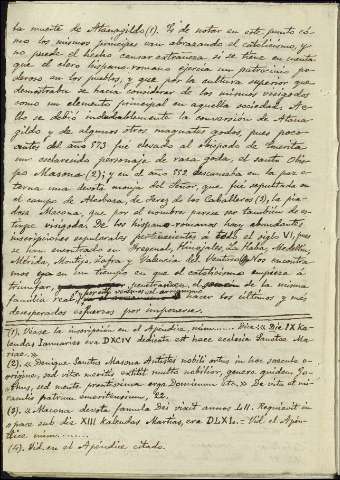 la muerte de Atanagildo (1). Es de notar en este punto có-
mo los mismos príncipes van abrazando el catolicismo, y
no puede el hecho causar extrañeza si se tiene en cuenta
que el clero hispano-romano ejercía un patrocinio po-
deroso en los pueblos, y que por la cultura superior que
demostraba se hacía considerar de los mismos visigodos
como un elemento principal en aquella sociedad. A e-
llo se debió indudablemente la conversión de Atana-
gildo y de algunos otros magnates godos, pues poco
antes del año 573 fué elevado al obispado de Emerita
un esclarecido personaje de raza goda, el santo Obis-
po Masona (2); y en el año 552 descansaba en la paz e-
terna una devota monja del Señor, que fué sepultada en
el campo de Alcobaza, de Jerez de los Caballeros (3), la pia-
dosa Macona, que por el nombre parece ser también de es-
tirpe visigoda. De los hispano-romanos hay abundantes
inscripciones sepulcrales pertenecientes á todo el siglo VI, pues
se han encontrado en Fregenal, Hinojales, La Haba, Medellín,
Mérida, Montijo, Zafra y Valencia del Ventoso (4). Nos encontra-
mos ya en un tiempo en que el catolicismo empieza á
triunfar, penetrando en el seno de la misma
familia real, y por esto vemos al arrianismo hacer los últimos y más
desesperados esfuerzos por imponerse.
(1). Véase la inscripción en el Apéndice, núm....... Dice: « Die IX Ka-
lendas Ianuarias era DXCIV dedicata est haec ecclesia Sanctae Ma-
riae. »
(2). « Denique Santus Masona Antistes nobili ortus in hoc saeculo o-
rigine, sed vitae meritis extitit multo nobilior, genere quidem Go-
thus, sed mente promtissima erga Dominum etc. » De vita et mi-
raculis patrum emeritensium,
(3). « Macona devota famula Dei vixit annos LII. Requievit in
pace sub die XIII Kalendas Martias, era DLXL. » Vid. el Apén-
dice núm.........
(4). Vid. en el Apéndice citado.